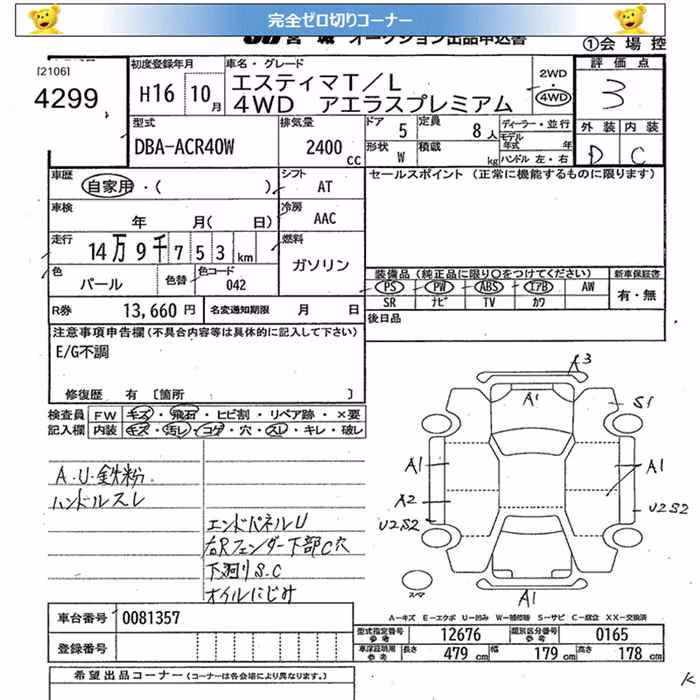 完全ゼロ切りコーナー
JU宮城 オークション出品申込書
①会場控
[2106]
4299
初度登録年月 H16 10月
車名・グレード エスティマT/L
4WD アエラスプレミアム
2WD ・ 4WD
評価点 3
外装 内装
D C
型式 DBA-ACR40W
排気量 2400 cc
ドア 5
定員 8人
形状 W
積載 kg
ディーラー・並行
モデル年式 年
ハンドル 左・右
車歴 自家用・( )
シフト AT
セールスポイント (正常に機能するものに限ります)
車検 年 月( 日)
冷房 AAC
走行 14万9千753km
燃料 ガソリン
色 パール
色替
色コード 042
装備品(純正品に限り○をつけてください)
新車保証書
PS PW ABS エアB AW
有・無
SR ナビ TV カワ
R券 13,660円
名変通知期限 月 日
後日品
注意事項申告欄(不具合内容等は具体的に記入して下さい)
E/G不調
修復歴 有 [箇所 ]
検査員 FW キズ・飛石・ヒビ割・リペア跡・×要
記入欄 内装 キズ・汚レ・コゲ・穴・スレ・キレ・破レ
A.U.鉄粉
ハンドルスレ
エンドパネルU
右Rフェンダー下部C穴
下廻りS.C
オイルにじみ
A3
A1
S1
A1
A1
A2
U2S2
U2S2
スペア
A1
A-キズ E-エクボ U-凹み W-補修跡 S-サビ C-腐食 XX-交換済
車台番号 0081357
登録番号
型式指定番号参考 12676
類別区分番号参考 0165
車庫証明用参考 長さ 479cm 幅 179cm 高さ 178cm
希望出品コーナー(コーナーは各会場により異なります。)
K